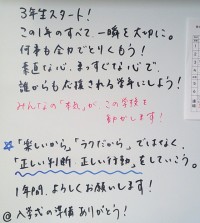 3年生スタート!
この1年のすべて、一瞬を大切に。
何事も全力でとりくもう!
素直な心、まっすぐな心で、
誰からも応援される学年にしよう!
みんなの「本気」が、この学校を
動かします!
☆「楽しいから」「ラクだから」ではなく、
「正しい判断 正しい行動」をしていこう。
1年間、よろしくお願いします!
@入学式の準備ありがとう!